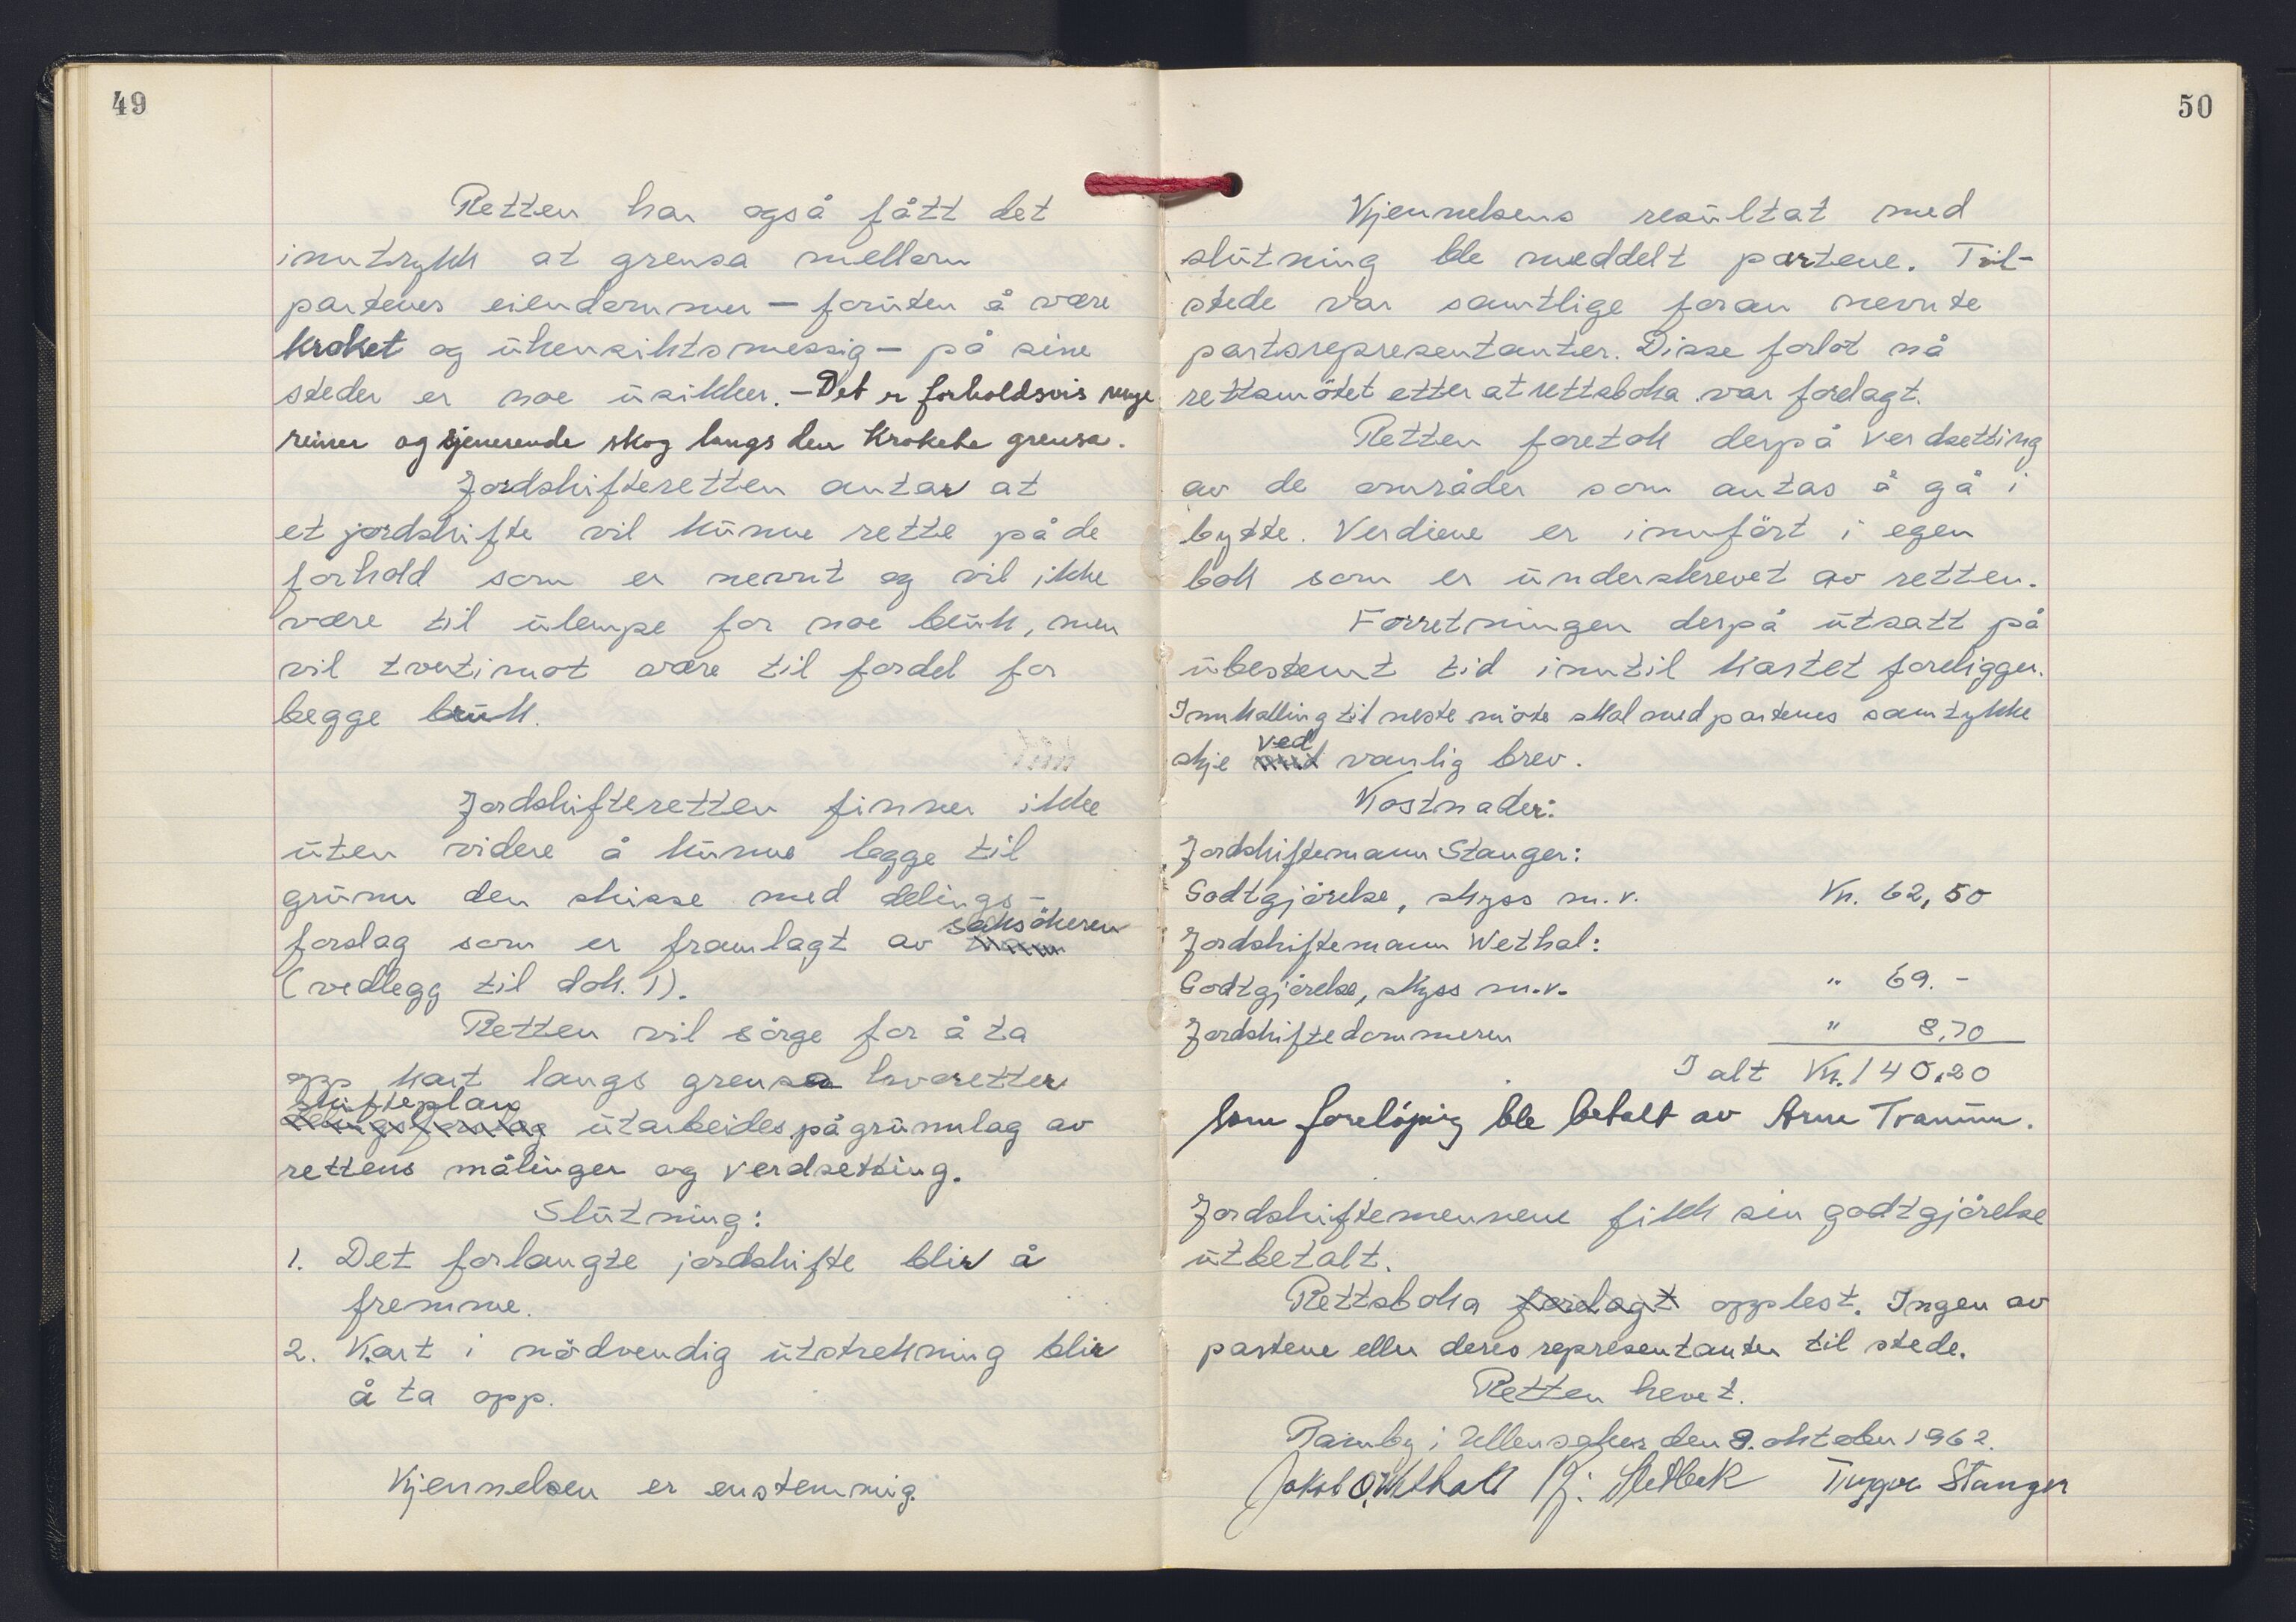 49
Retten har også fått det
inntrykk at grensa mellom
partenes eiendommer – foruten å være
kroket og uhensiktsmessig – på sine
steder er noe usikker. – Det er forholdsvis mye
reiner og sjenerende skog langs den krokete grensa.
Jordskifteretten antar at
et jordskifte vil kunne rette på de
forhold som er nevnt og vil ikke
være til ulempe for noe bruk, men
vil tvertimot være til fordel for
begge bruk.
Jordskifteretten finner ikke
uten videre å kunne legge til
grunn den skisse med delings-
forslag som er framlagt av saksökeren
(vedlegg til dok. 1).
Retten vil sörge for å ta
opp kart langs grensa hvoretter
skifteplan
delingsforslag utarbeides på grunnlag av
rettens målinger og verdsetting.
Slutning:
1. Det forlangte jordskifte blir å
fremme.
2. Kart i nödvendig utstrekning blir
å ta opp.
Kjennelsen er enstemmig.
50
Kjennelsens resultat med
slutning ble meddelt partene. Til-
stede var samtlige foran nevnte
partsrepresentanter. Disse forlot nå
rettsmötet etter at rettsboka var fordagt.
Retten foretok derpå verdsetting
av de områder som antas å gå i
bytte. Verdiene er innfört i egen
bok som er underskrevet av retten.
Forretningen derpå utsatt på
ubestemt tid inntil kartet foreligger.
Innkalling til neste möte skal med partenes samtykke
ved
skje med vanlig brev.
Kostnader:
Jordskiftemann Stanger:
Godtgjörelse, skyss m.v. Kr. 62,50
Jordskiftemann Wethal:
Godtgjörelse, skyss m.v. " 69.-
Jordskiftedommeren " 8,70
I alt Kr. 140,20
som forelöpig ble betalt av Arne Tranum.
Jordskiftemennene fikk sin godtgjörelse
utbetalt.
Rettsboka fordagt opplest. Ingen av
partene eller deres representanter til stede.
Retten hevet.
i Ullensaker den 9. oktober 1962.
Jakob O. Wethal Kj. Sletbak Trygve Stanger